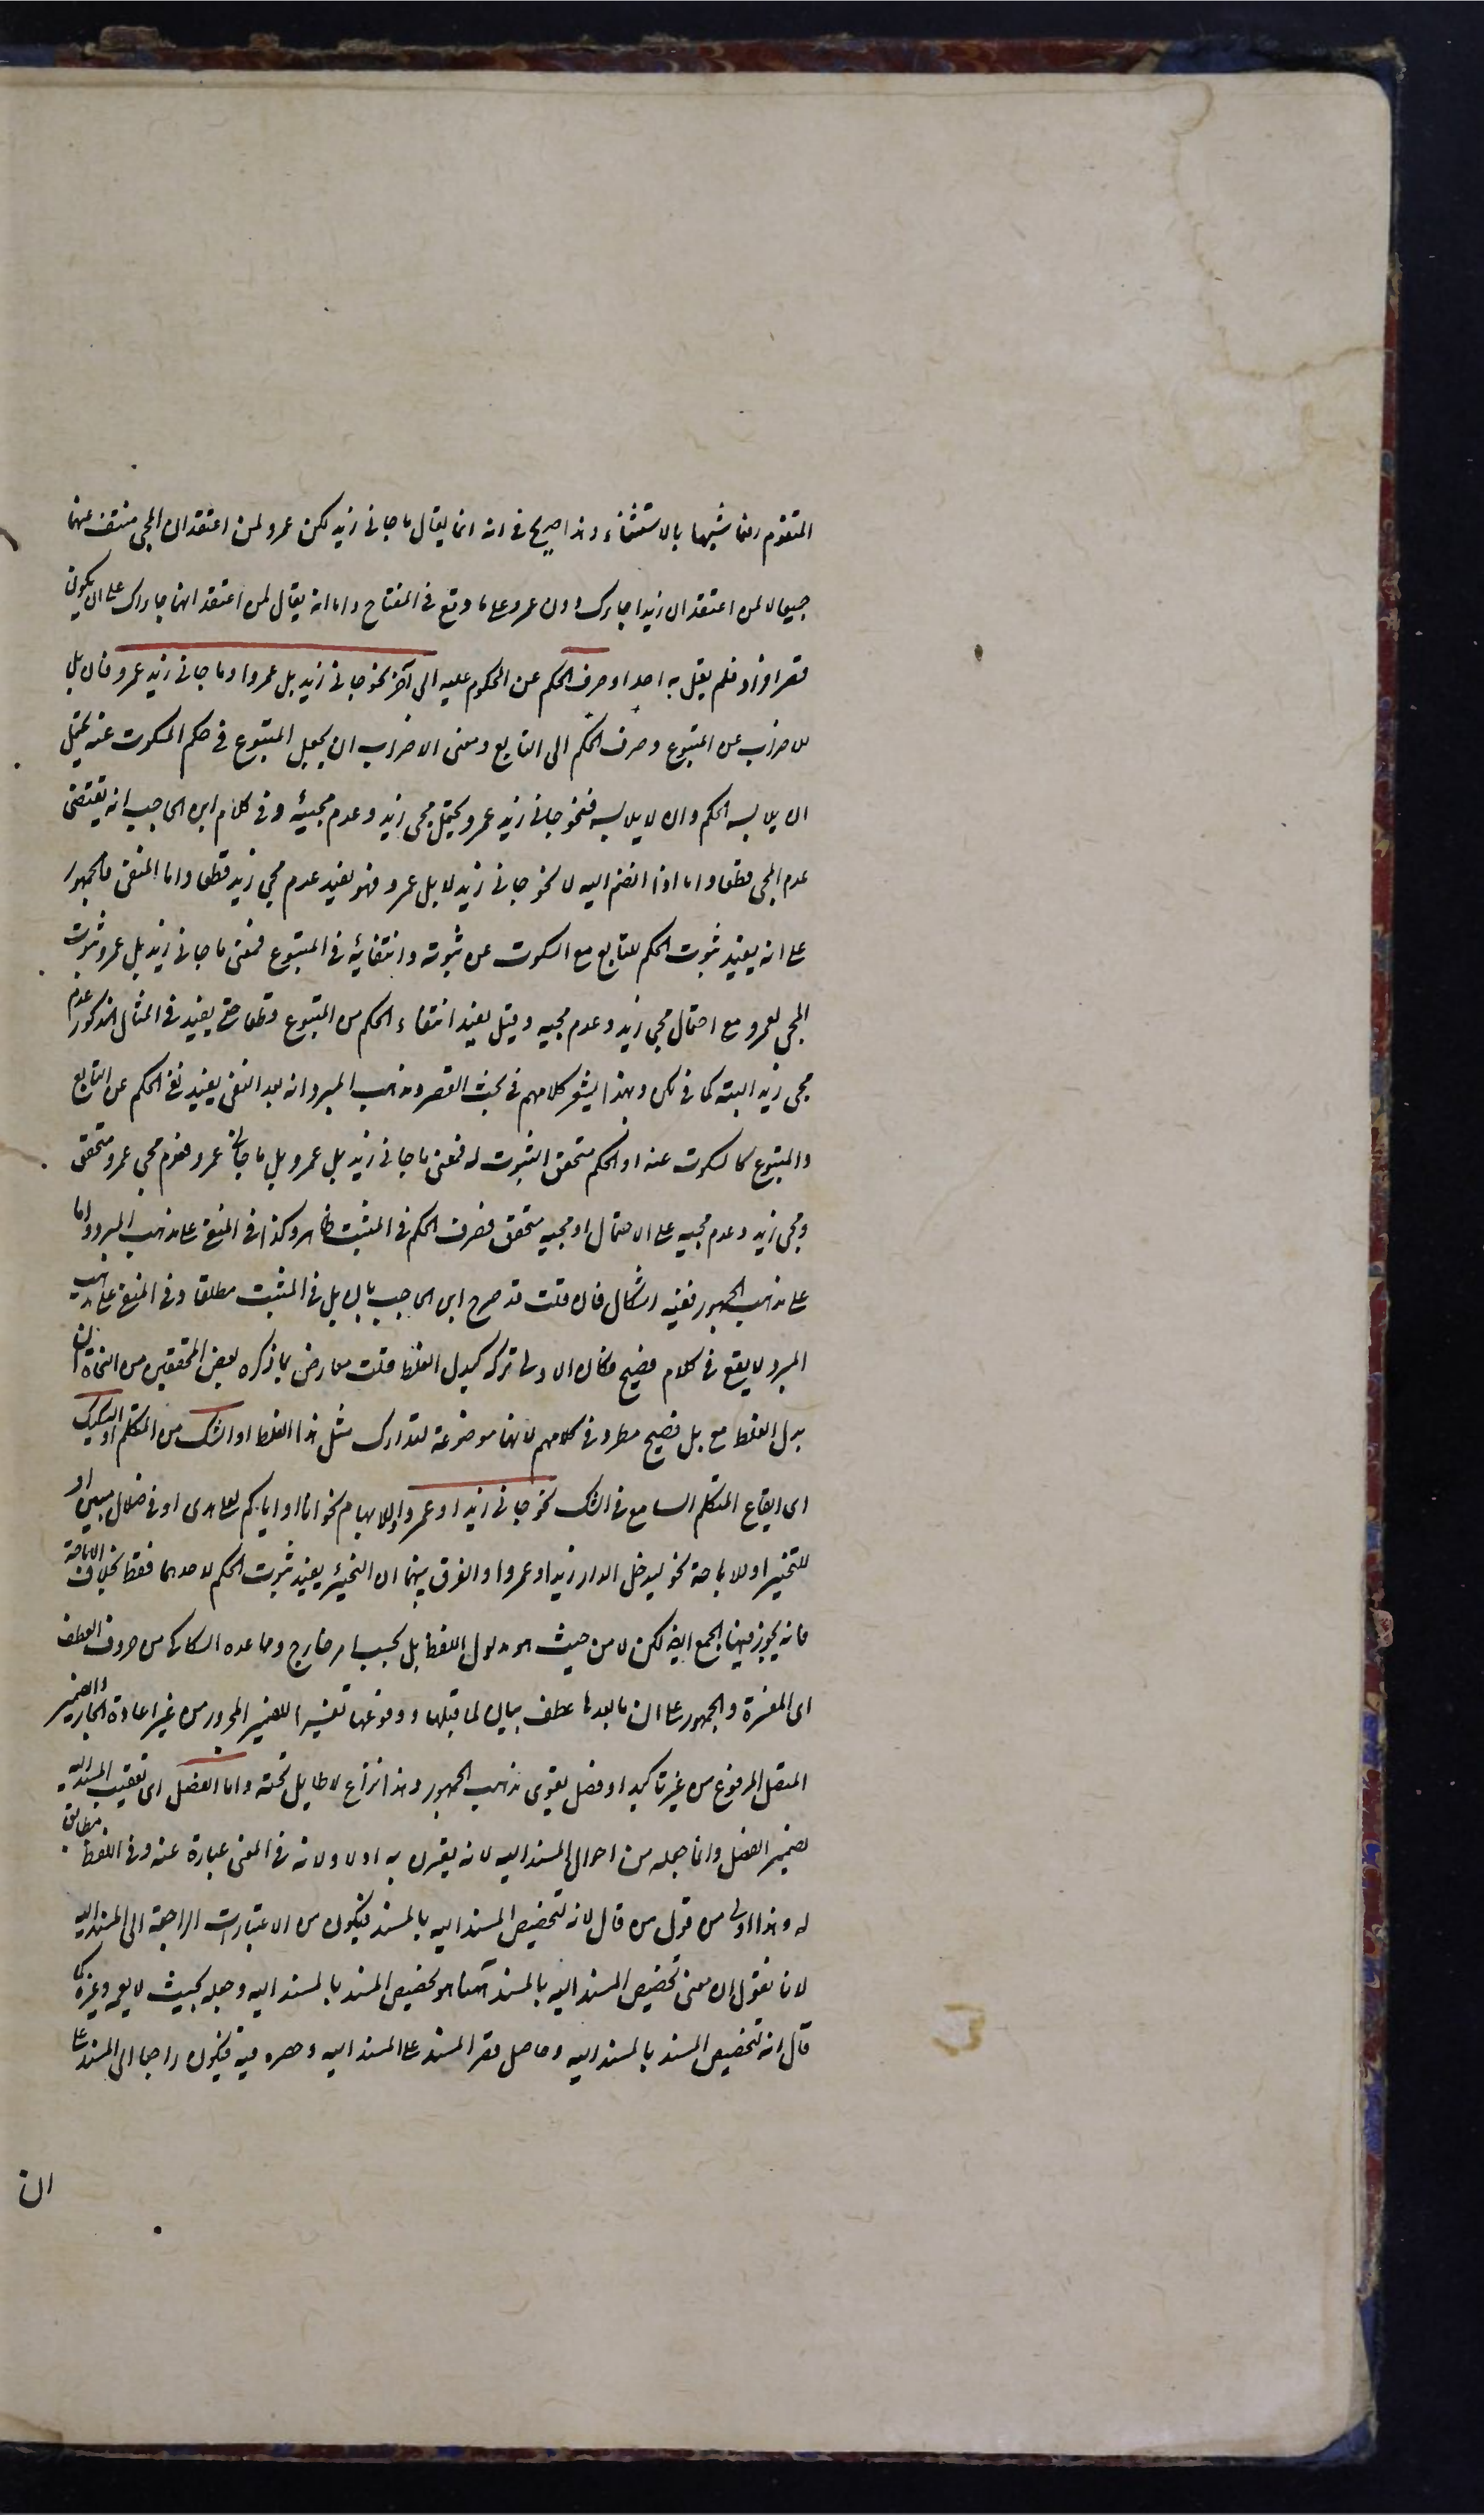 المتقدم رفعا شبيها بالاستثناء وهذا صريح في انه انما يقال ما جاني زيد لكن عمرو لمن اعتقد ان المجي منتف عنهما
جميعا لا لمن اعتقد ان زيدا جاءك دون عمرو على ما وقع في المفتاح واما انه يقال لمن اعتقد انهما جاراك على ان يكون
قصر افراد فلم يقل به احد او صرف الحكم عن المحكوم عليه الى آخر نحو جاني زيد بل عمرو او ما جاني زيد بل عمرو فان بل
للاضراب عن المتبوع وصرف الحكم الى التابع ومعنى الاضراب ان يجعل المتبوع في حكم المسكوت عنه يحتمل
ان يلابسه الحكم وان لا يلابسه فنحو جاني زيد بل عمرو يحتمل مجي زيد وعدم مجيئه وفي كلام ابن الحاجب انه يقتضي
عدم المجي قطعا واما اذا انضم اليه لا نحو جاني زيد لا بل عمرو فهو يفيد عدم مجي زيد قطعا واما المنفي فالجمهور
على انه يفيد ثبوت الحكم للتابع مع السكوت عن ثبوته وانتفائه في المتبوع فمعنى ما جاني زيد بل عمرو ثبوت
المجي لعمرو مع احتمال مجي زيد وعدم مجيه وقيل يفيد انتفاء الحكم من المتبوع قطعا حتى يفيد في المثال المذكور عدم
مجي زيد البتة كما في لكن وبهذا يشعر كلامهم في بحث القصر ومذهب المبرد انه بعد النفي يفيد نفي الحكم عن التابع
والمتبوع كالمسكوت عنه او الحكم متحقق الثبوت له فمعنى ما جاني زيد بل عمرو بل ما جاني عمرو فعدم مجي عمرو متحقق
ومجي زيد وعدم مجيه على الاحتمال او مجيه متحقق فصرف الحكم في المثبت ظاهر وكذا في المنفي على مذهب المبرد واما
على مذهب الجمهور ففيه اشكال فان قلت قد صرح ابن الحاجب بان بل في المثبت مطلقا وفي المنفي على مذهب
المبرد لا يقع في كلام فصيح فكان الاولى تركه كبدل الغلط قلت معارض بما ذكره بعض المحققين من النحاة ان
بدل الغلط مع بل فصيح مطرد في كلامهم لانها موضوعة لتدارك مثل هذا الغلط او الشك من المتكلم او التشكيك
اى ايقاع المتكلم السامع في الشك نحو جاني زيد او عمرو او للابهام نحو انا او اياكم لعلى هدى او في ضلال مبين او
للتخيير او للاباحة نحو ليدخل الدار زيد او عمرو او الفرق بينهما ان التخيير يفيد ثبوت الحكم لاحدهما فقط بخلاف الاباحة
فانه يجوز فيها الجمع ايضا لكن لا من حيث هو مدلول اللفظ بل بحسب امر خارج وما عده السكاكي من حروف العطف
اى المفسرة والجمهور على ان ما بعدها عطف بيان لما قبلها ووقوعها تفسيرا للضمير المجرور من غير اعادة الجار والضمير
المتصل المرفوع من غير تاكيد او فصل يقوى مذهب الجمهور وهذا نزاع لا طايل تحته واما الفصل اى تعقيب المسند اليه
بضمير الفصل وانما جعله من احوال المسند اليه لانه يقترن به اولا ولانه في المعنى عبارة عنه وفي اللفظ مطابق
له وهذا اولى من قول من قال لانه لتخصيص المسند اليه بالمسند فيكون من الاعتبارات الراجعة الى المسند اليه
لانا نقول ان معنى تخصيص المسند اليه بالمسند ههنا هو تخصيص المسند بالمسند اليه وجعله بحيث لا يعمه وغيره كما
قال انه لتخصيص المسند بالمسند اليه وحاصله قصر المسند على المسند اليه وحصره فيه فيكون راجعا الى المسند على
ان